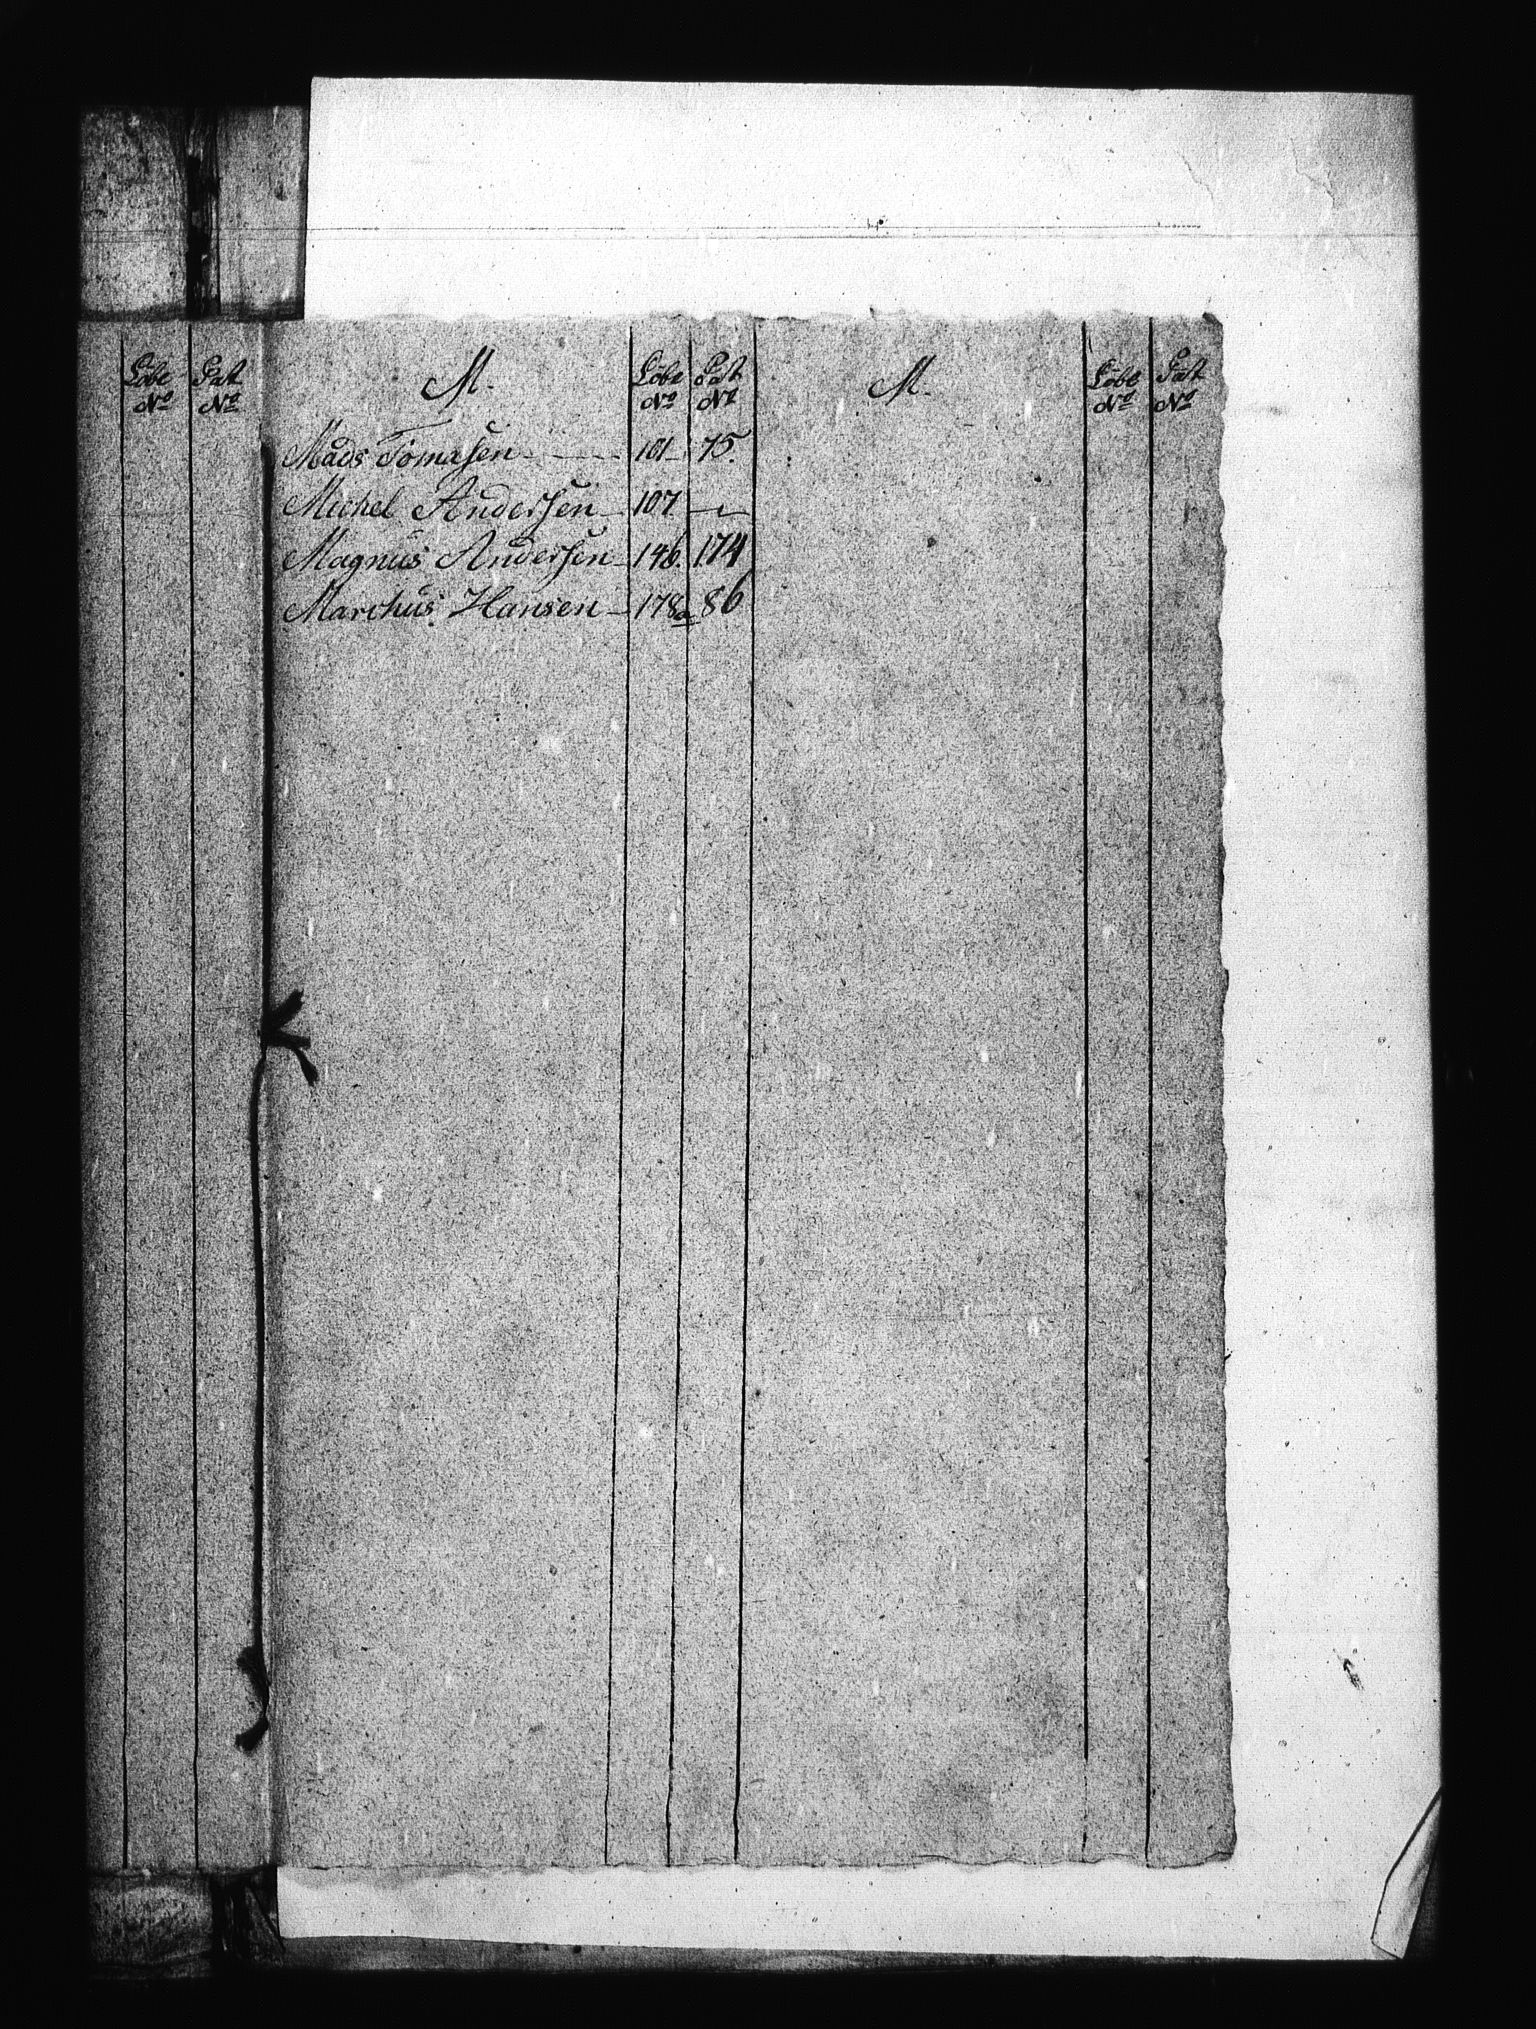 Löbe Pat
No No
M. Löbe Pat
No No
Mads Tomasen 101 75.
Michel Andersen 107 —
Magnus Andersen 146. 174
Marchus Hansen 178a 86
M. Löbe Pat
No No